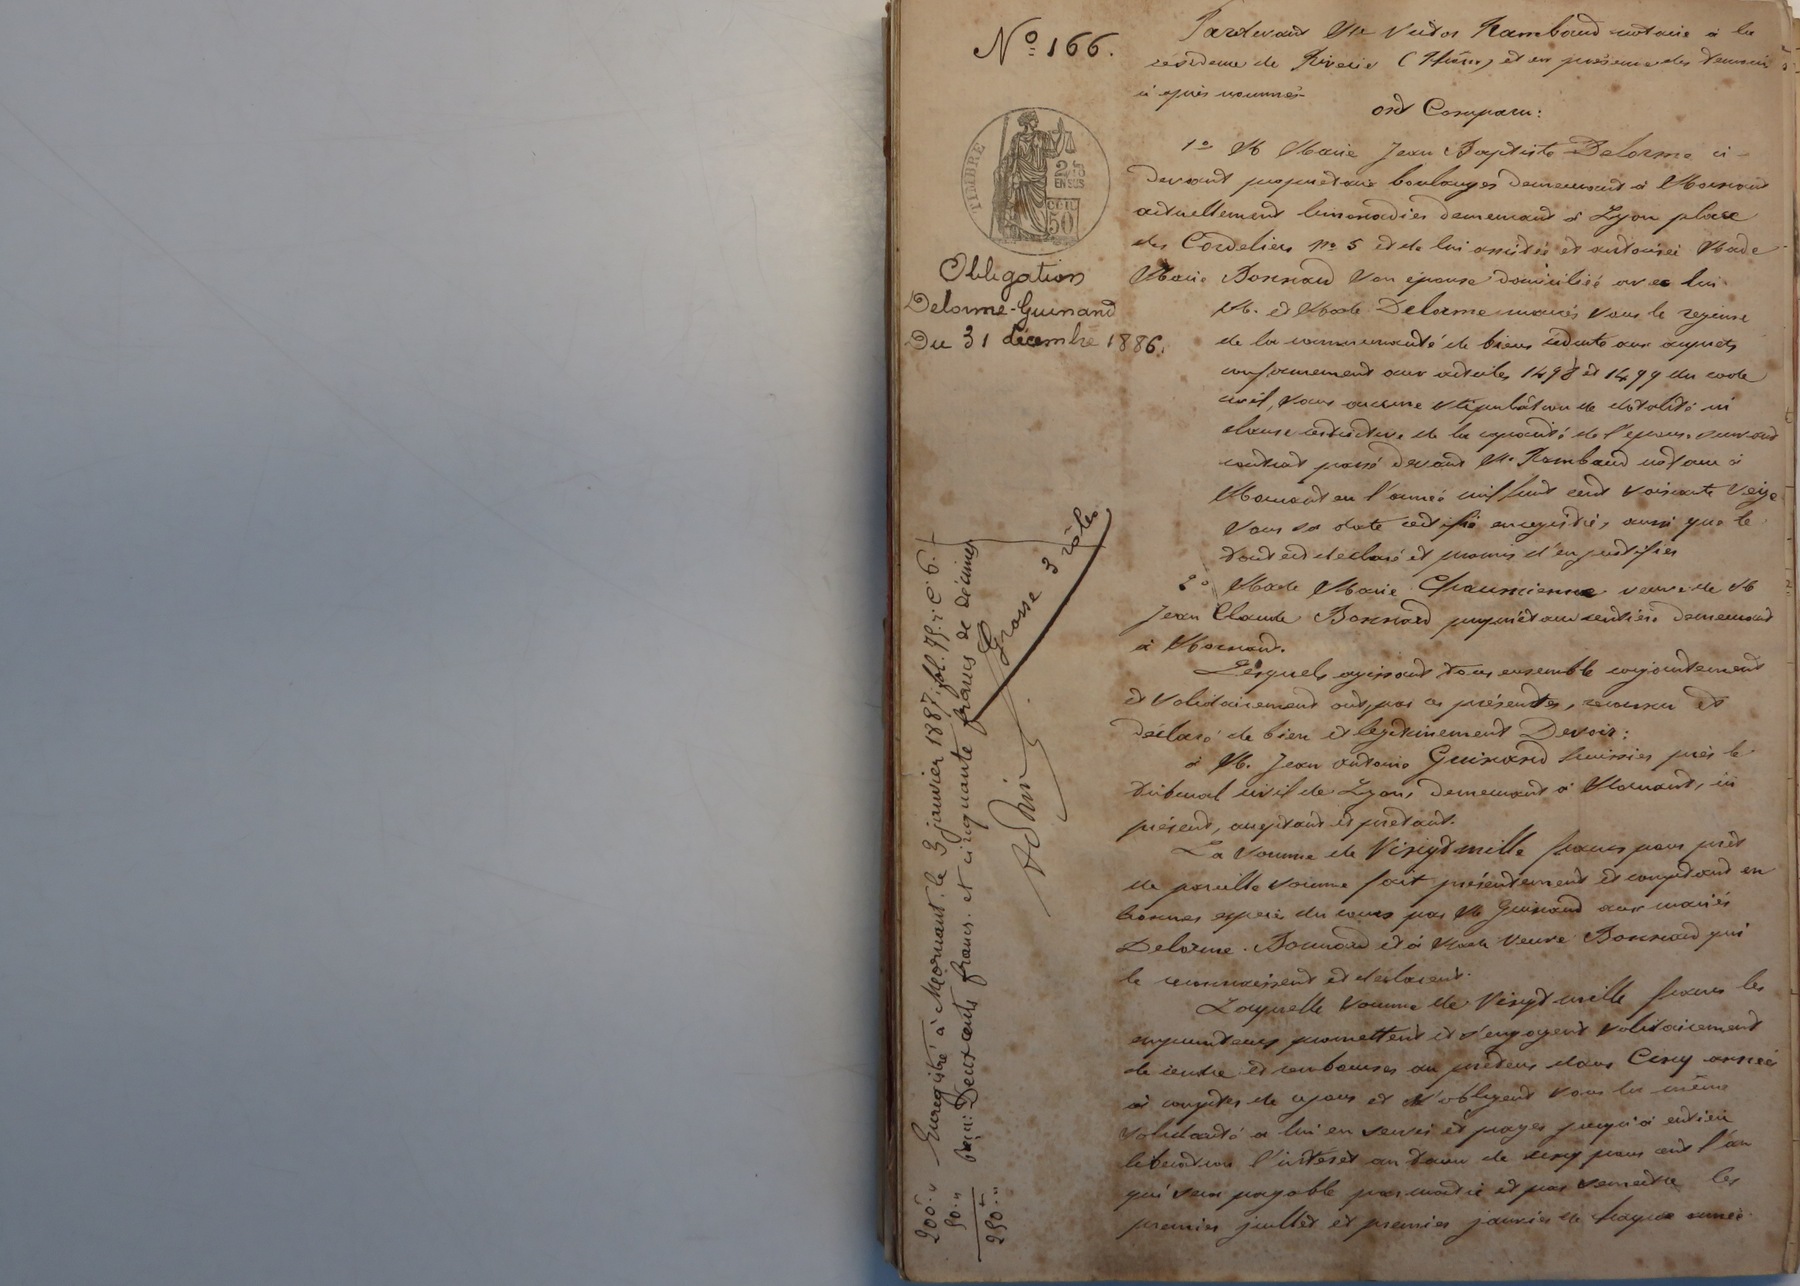 N° 166.
TIMBRE
2/10
EN SUS
50
Obligation
Delorme-Guinand
Du 31 décembre 1886.
Pardevant Me Victor Rambaud notaire à la
résidence de Riverie (Rhône) et en présence des témoins
ci après nommés
ont Comparu:
1° M Marie Jean Baptiste Delorme ci-
devant propriétaire boulanger demeurant à Mornant
actuellement limonadier demeurant à Lyon place
des Cordeliers n° 5 et de lui assistée et autorisée Made
Marie Bonnard son épouse domiciliée avec lui
M. et Made Delorme mariés sous le régime
de la communauté de biens réduite aux acquets
conformement aux articles 1498 et 1499 du code
civil, sans aucune stipulation de dotalité ni
clause restrictive de la capacité de l'épouse suivant
contrat passé devant Me Rambaud notaire à
Mornant en l'année mil huit cent soixante seize
sous sa date enregistré, ainsi que le
tout est déclaré et promis d'en justifier
2° Made Marie veuve de M
Jean Claude Bonnard propriétaire rentière demeurant
à Mornant.
Lesquels agissant tous ensemble conjointement
et solidairement ont, par ces présentes, reconnu et
déclaré de bien et légitimement Devoir:
à M. Jean Antoine Guinand huissier près le
tribunal civil de Lyon, demeurant à Mornant, ici
présent, acceptant et prêtant.
La somme de Vingt mille francs pour prêt
de pareille somme fait présentement et comptant en
bonnes espèces du cours par M Guinand aux mariés
Delorme-Bonnard et à Made Veuve Bonnard qui
le reconnaissent et déclarent.
Laquelle somme de Vingt mille francs les
emprunteurs promettent et s'engagent solidairement
de rendre et rembourser au prêteur dans Cinq années
à compter de ce jour et s'obligent sous la même
solidarité à lui en servir et payer jusqu'à entière
libération l'intérêt au taux de cinq pour cent l'an
qui sera payable par moitié et par semestre les
premier juillet et premier janvier de chaque année
Grosse 3 rôles
Enregistré à Mornant. le 3 janvier 1887, fol. 79. r. C. 6.
Reçu: Deux cents francs. et cinquante francs de décimes
200..
50..
250..